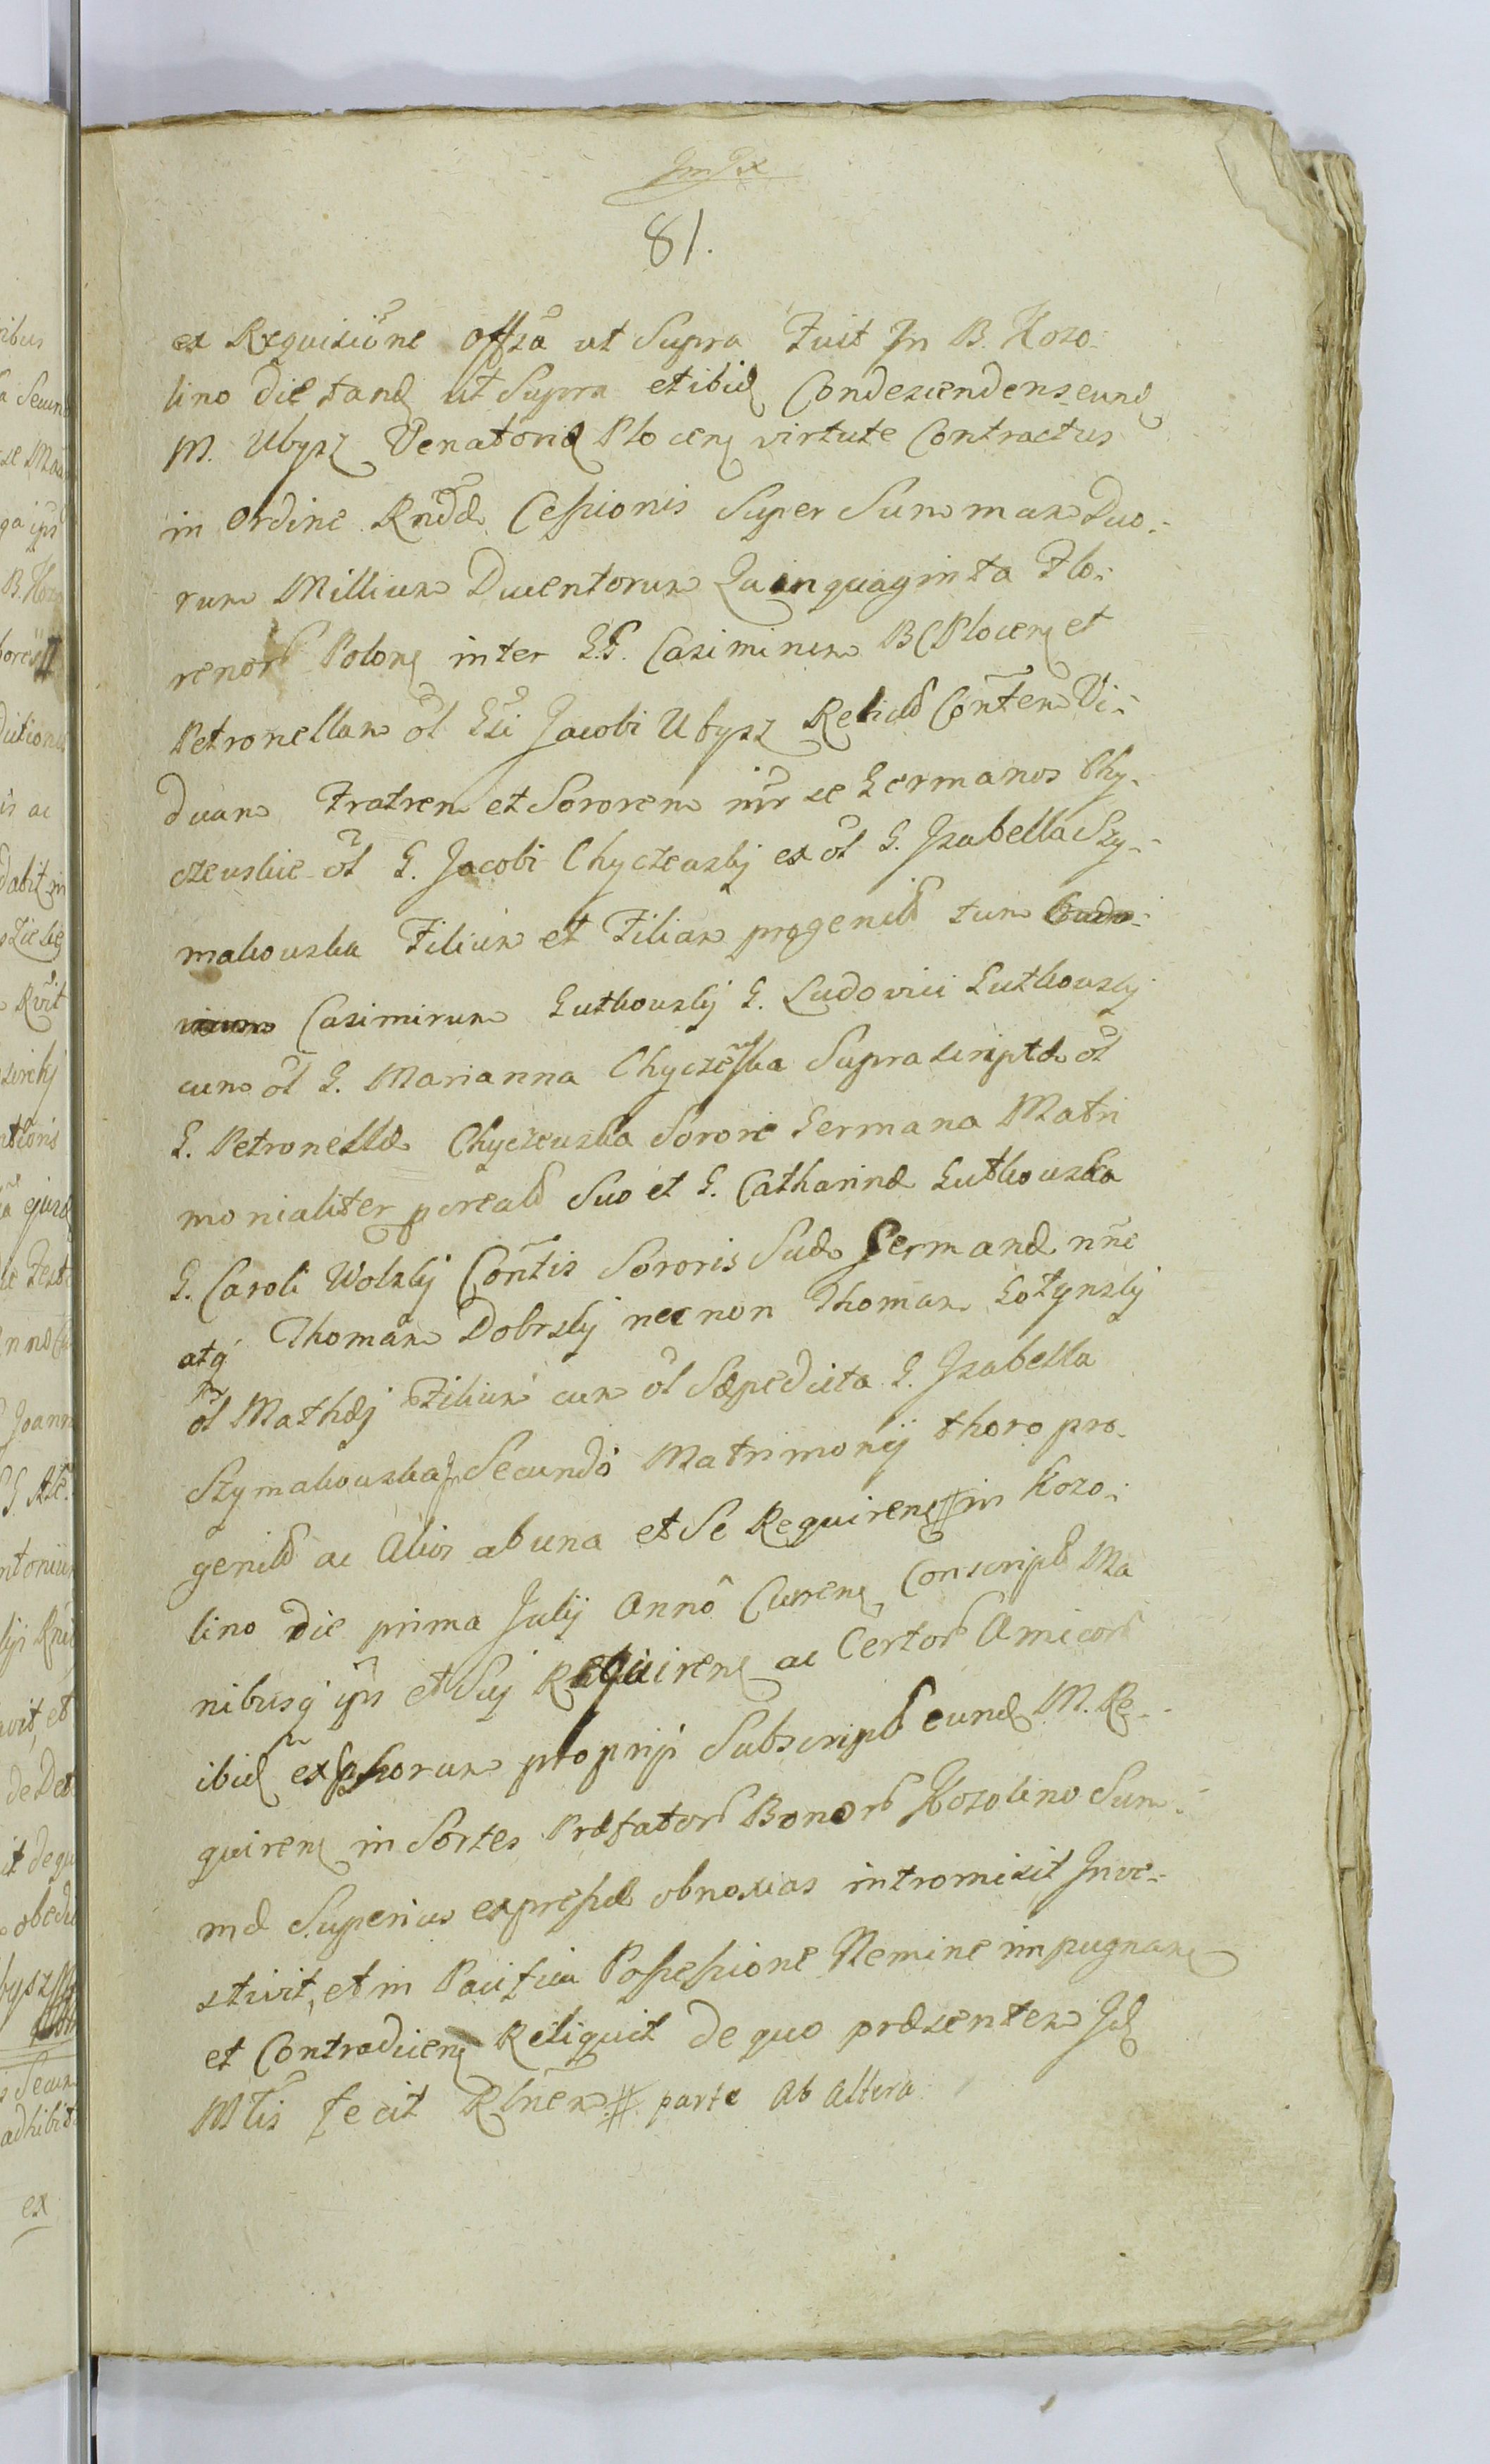 81.
ex Requisitione offsa ut Supra Fuit In B. Kozo-
lino die tand ut Supra et ibid Condescendens eund
M. Ubysz Venatorie Plocen virtute Contractus
in Ordine Rndae Cessionis Super Summam Duo-
rum Millium Ducentorum Quinquaginta Flo-
renor Polon inter G.G. Casimirum B C Plocen et
Petronellam ol Gsi Jacobi Ubysz Relict Conten Vi-
duam Fratrem et Sororem inr se Germanos Chy-
czewskie ol G. Jacobi Chyczewskj ex ol G. Izabella Szy-
makowska Filium et Filiam progenit tum
Casimirum Gutkowskj G. Ludovici Gutkowskj
cum ol G. Marianna Chyczewska Suprascripta ol
G. Petronellae Chyczewska Sorore Germana Matri
monialiter pcreat Suo et G. Catharinae Gutkowska
G. Caroli Wolskj Contis Sororis Suae Germanae nne
atq Thomam Dobrskj nec non Thomam Gotynskj
ol Mathaej Filium cum ol Saepedicta G. Izabella
Szymakowska Secundo Matrimonij thoro pro-
genit ac Alios ab una et Se Requiren # in Kozo-
lino die prima Julij Anno Curren Conscript Ma
nibusq ips et Suj Requiren ac Certor Amicor
ibid exsshorum proprijs Subscript eund M. Re-
quiren in Sortes Praefator Bonor Kozolino Sum-
mae Superius expressae obnoxias intromisit Inve-
stivit, et in Pacifica Possessione Nemine impugnan
et Contradicen Reliquit de quo praesentem Id
Mtis fecit Rlnem # parte Ab Altera